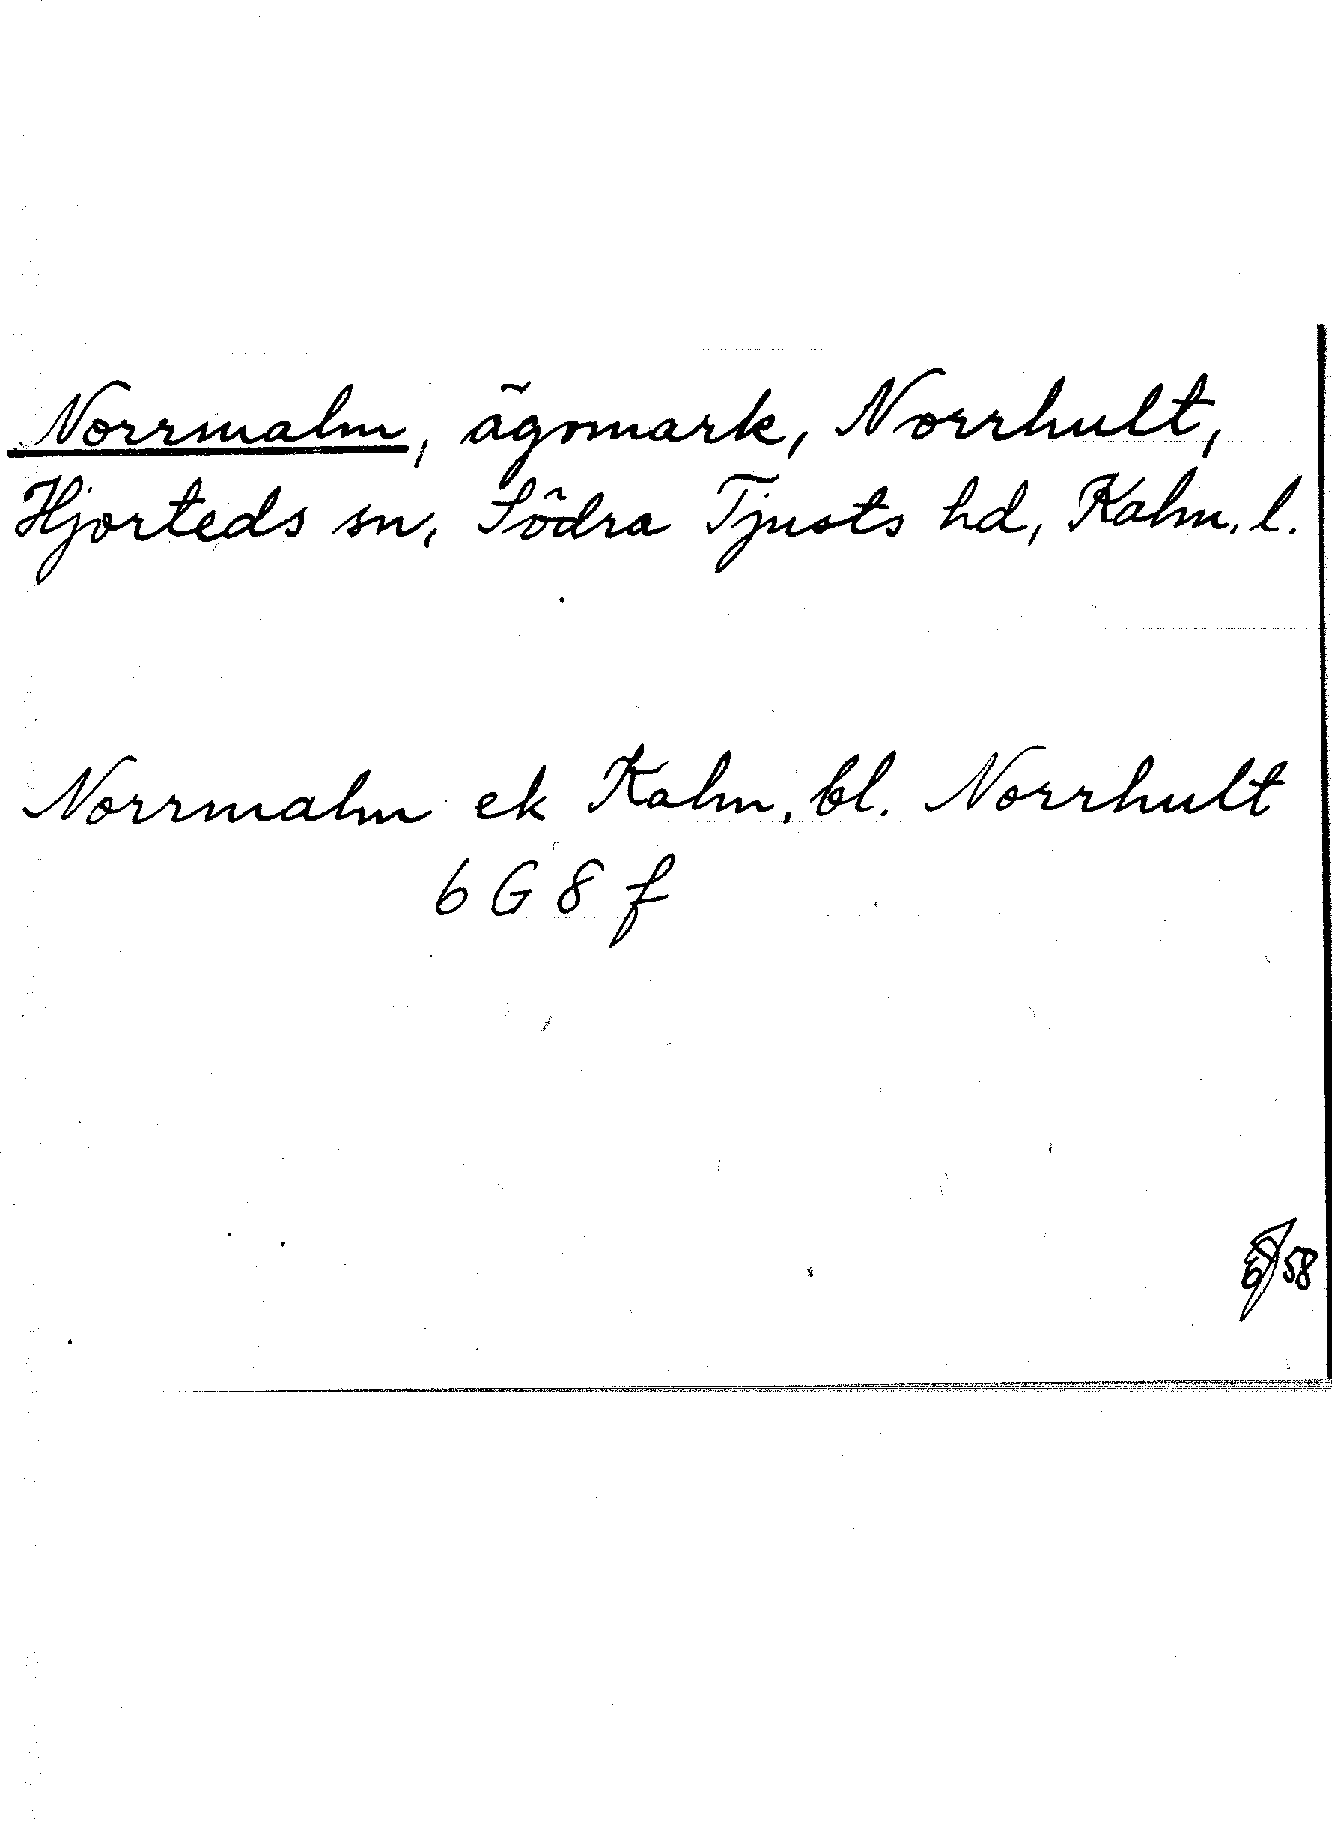 Norrmalm, ägomark, Norrhult,
Hjorteds sn, Södra Tjusts hd, Kalm. l.
Norrmalm ek Kalm. bl. Norrhult
6 G 8 f
58